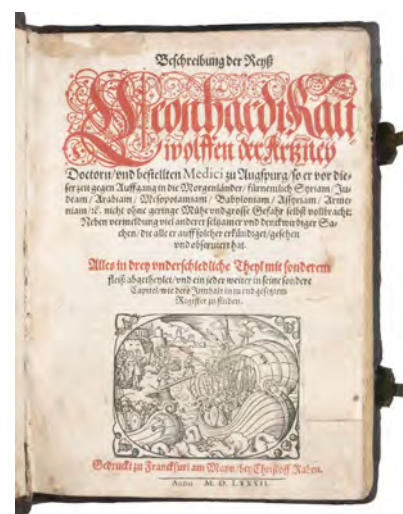 Beschreibung der Reyß
Leonhardi Rau
wolffen der Artzney
Doctorn/vnd bestellten Medici zu Augspurg/so er vor die-
ser zeit gegen Auffgang in die Morgenländer/fürnemlich Syriam/Ju-
dæam/Arabiam/Mesopotamiam/Babyloniam/Assyriam/Arme-
niam/ꝛc. nicht ohne geringe Mühe vnd grosse Gefahr selbst vollbracht:
Neben vermeldung viel anderer seltzamer vnd denckwirdiger Sa-
chen/die alle er auff solcher erkündiget/gesehen
vnd obseruiert hat.
Alles in drey vnderschiedliche Theyl mit sonderem
fleiß abgetheylet/vnd ein jeder weiter in seine sondere
Capitel/wie dero Jnnhalt in zu end gesetztem
Register zu finden.
Gedruckt zu Franckfurt am Mayn/bey Christoff Raben.
Anno M. D. LXXXII.